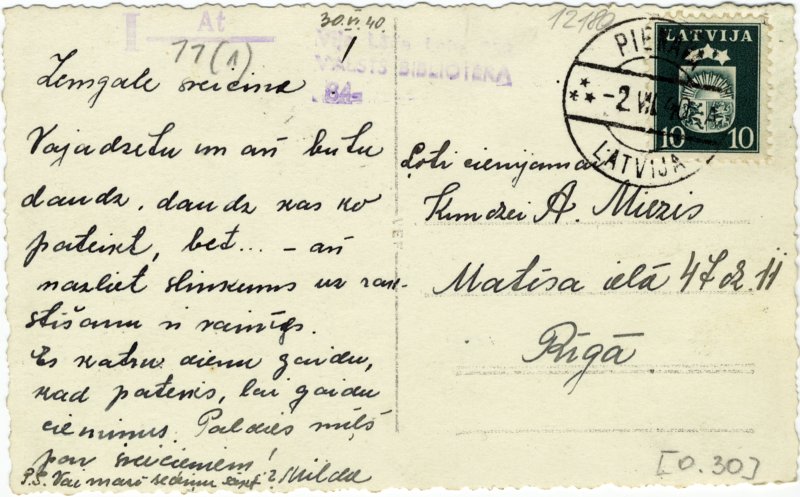 I At
11(1)
30.VI 40.
12180
VALSTS BIBLIOTEKA
84-
LATVIJA
10 10
PIEKAL
-2.VII.40
LATVIJA
Zemgale sveicina
Vajadzētu un arī būtu
daudz, daudz kas ko
pateikt, bet... - arī
nazliet slinkums uz rak-
stīšanu ir vainīgs.
Es katru dienu gaidu,
kad pateiks, lai gaidu
ciemiņus. Paldies mīļš
par sveicieniem!
P.S. Vai
Milda
Ļoti cienījamai
Kundzei A. Miezis
Matīsa ielā 47 dz. 11
Rīgā
[0.30]